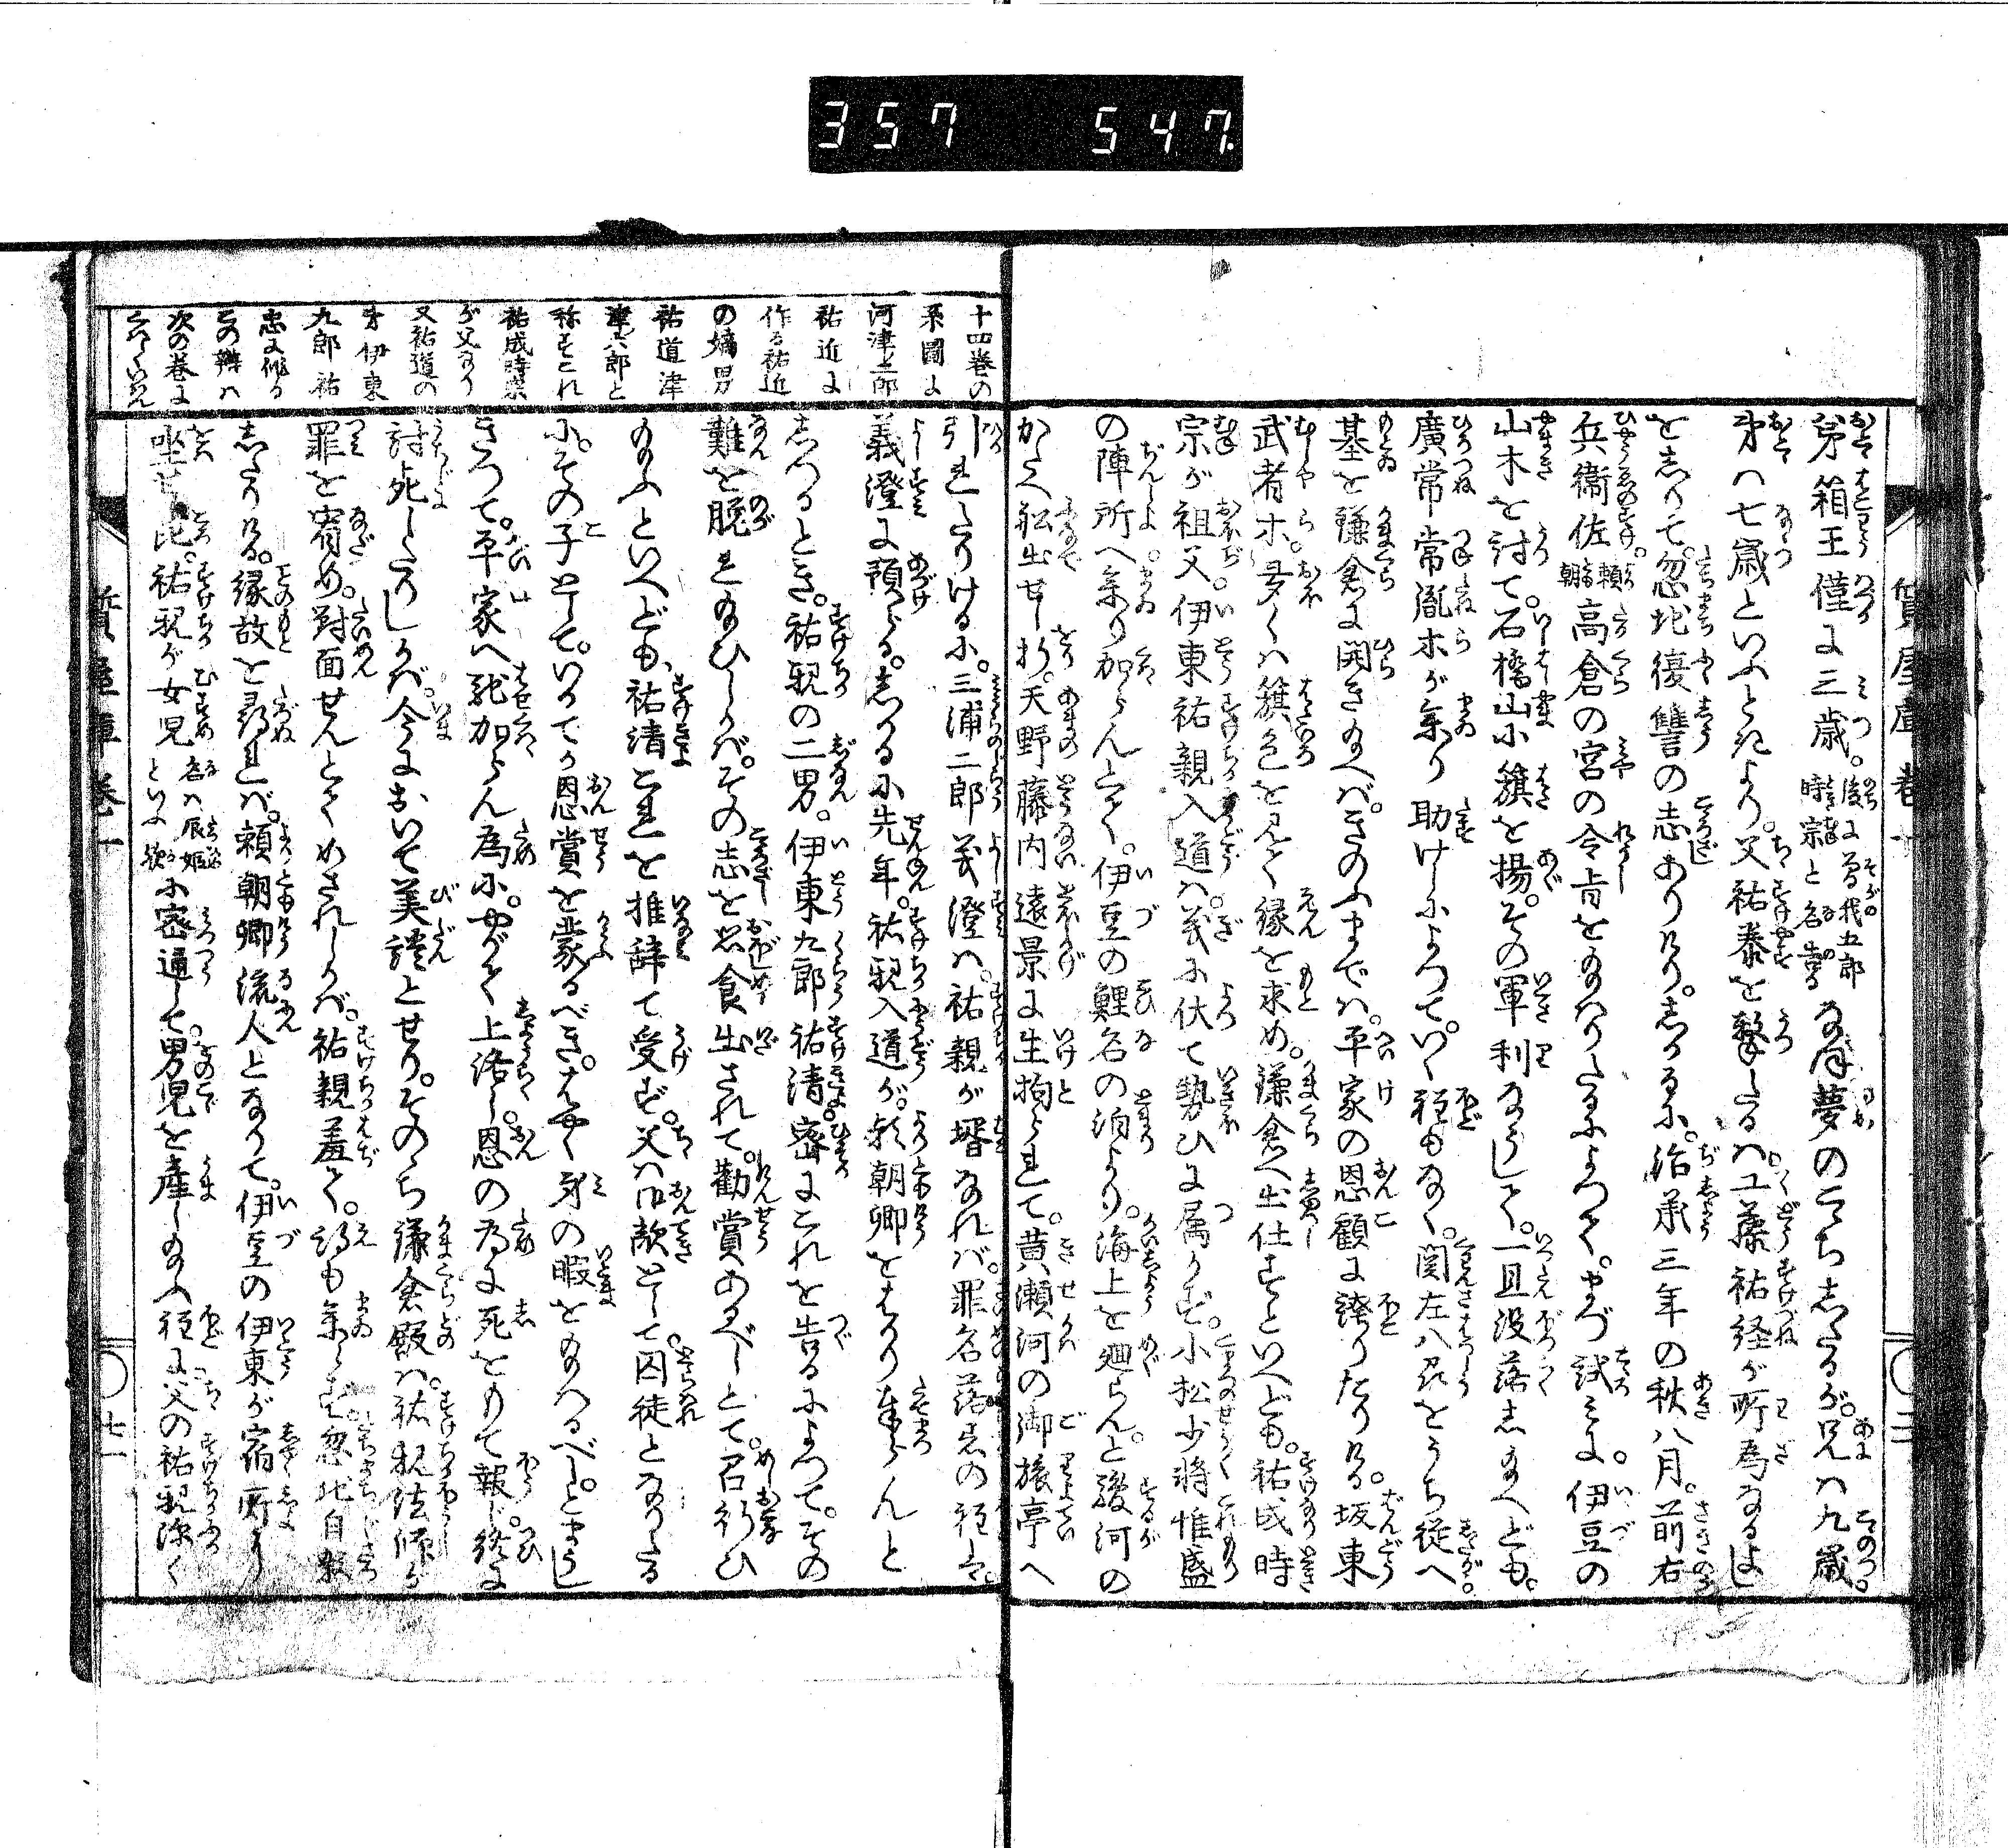 357 547.
質屋庫巻一
弟箱王僅に三歳。後に曽我五郎時宗と名告るなほ夢のこゝちしたるが。兄は九歳。
弟は七歳といふとしより。父祐泰を撃したるは。工藤祐経が所為なるよし
をしりて。忽地復讐の志ありけり。しかるに。治承三年の秋八月。前右
兵衞佐。頼朝高倉の宮の令旨をたまはりたるによつて。まづ試みに。伊豆の
山木を討て。石橋山に籏を揚。その軍利なうして。一旦没落し給へども。
廣常常胤ホが参り助けしによつて。いく程もなく。関左八州をうち従へ。
基を鎌倉に開き給へば。きのふまでは。平家の恩顧に誇りたりける。坂東
武者ホ。多くは籏色を見て縁を求め。鎌倉へ出仕すといへども。祐成時
宗が祖父。伊東祐親入道は。義に伏て勢ひに属かず。小松少将惟盛
の陣所へ参り加らんとて。伊豆の鯉名の泊より。海上を廻らんと駿河の
かたへ舩出せし折。天野藤内遠景に生拘られて。黄瀬河の御旅亭へ
十四巻の
系圖に
河津二郎
祐近に
作る祐近
の嫡男
祐道津
津六郎と
称すこれ
祐成時宗
が父なり
又祐道の
弟伊東
九郎祐
忠に作る
この辨は
次の巻に
くはしくいはん
引れたりけるに。三浦二郎義澄は。祐親が壻なれば。罪名落着の程は。
義澄に預らる。しかるに先年。祐親入道が。頼朝卿をはかり奉らんと
しつるとき。祐親の二男。伊東九郎祐清。密にこれを告るによつて。その
難を脱れ給ひしかば。その志を思食出されて。勧賞あるべしとて。召行ひ
給ふといへども。祐清これを推辞て受ず。父は御敵として。囚徒となりたる
に。その子として。いかでか恩賞を蒙るべき。はやく身の暇を給はるべしとまうし
きつて。平家へ馳加らん為に。やがて上洛し。恩の為に死をもて報じ。終に
討死したりしかば。今において美談とせり。そののち鎌倉殿は。祐親法師が
罪を宥め。對面せんとてめされしかば。祐親羞て。得も参らず。忽地自殺
したりける。縁故を尋れば。頼朝卿流人となりて。伊豆の伊東が宿所に
坐せし比。祐親が女児名は辰姫といふ歟に密通して。男児を産し給ふ程に。父の祐親深く
質屋庫巻一
〇七